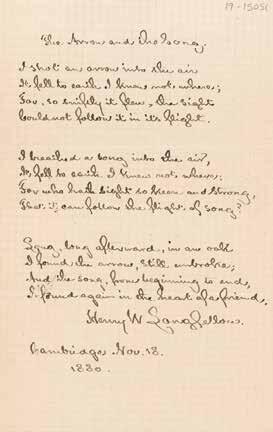 19-1505(
The Arrow and the Song.
I shot an arrow into the air
It fell to earth I knew not where;
For, so swiftly it flew, the sight
Could not follow it in its flight.
I breathed a song into the air,
It fell to earth, I knew not where;
For who hath sight so keen and strong,
That it can follow the flight of song?
Long, long afterward, in an oak
I found the arrow, still unbroke;
And the song, from beginning to end,
I found again in the heart of a friend.
Henry W. Longfellow.
Cambridge Nov. 18.
1880.